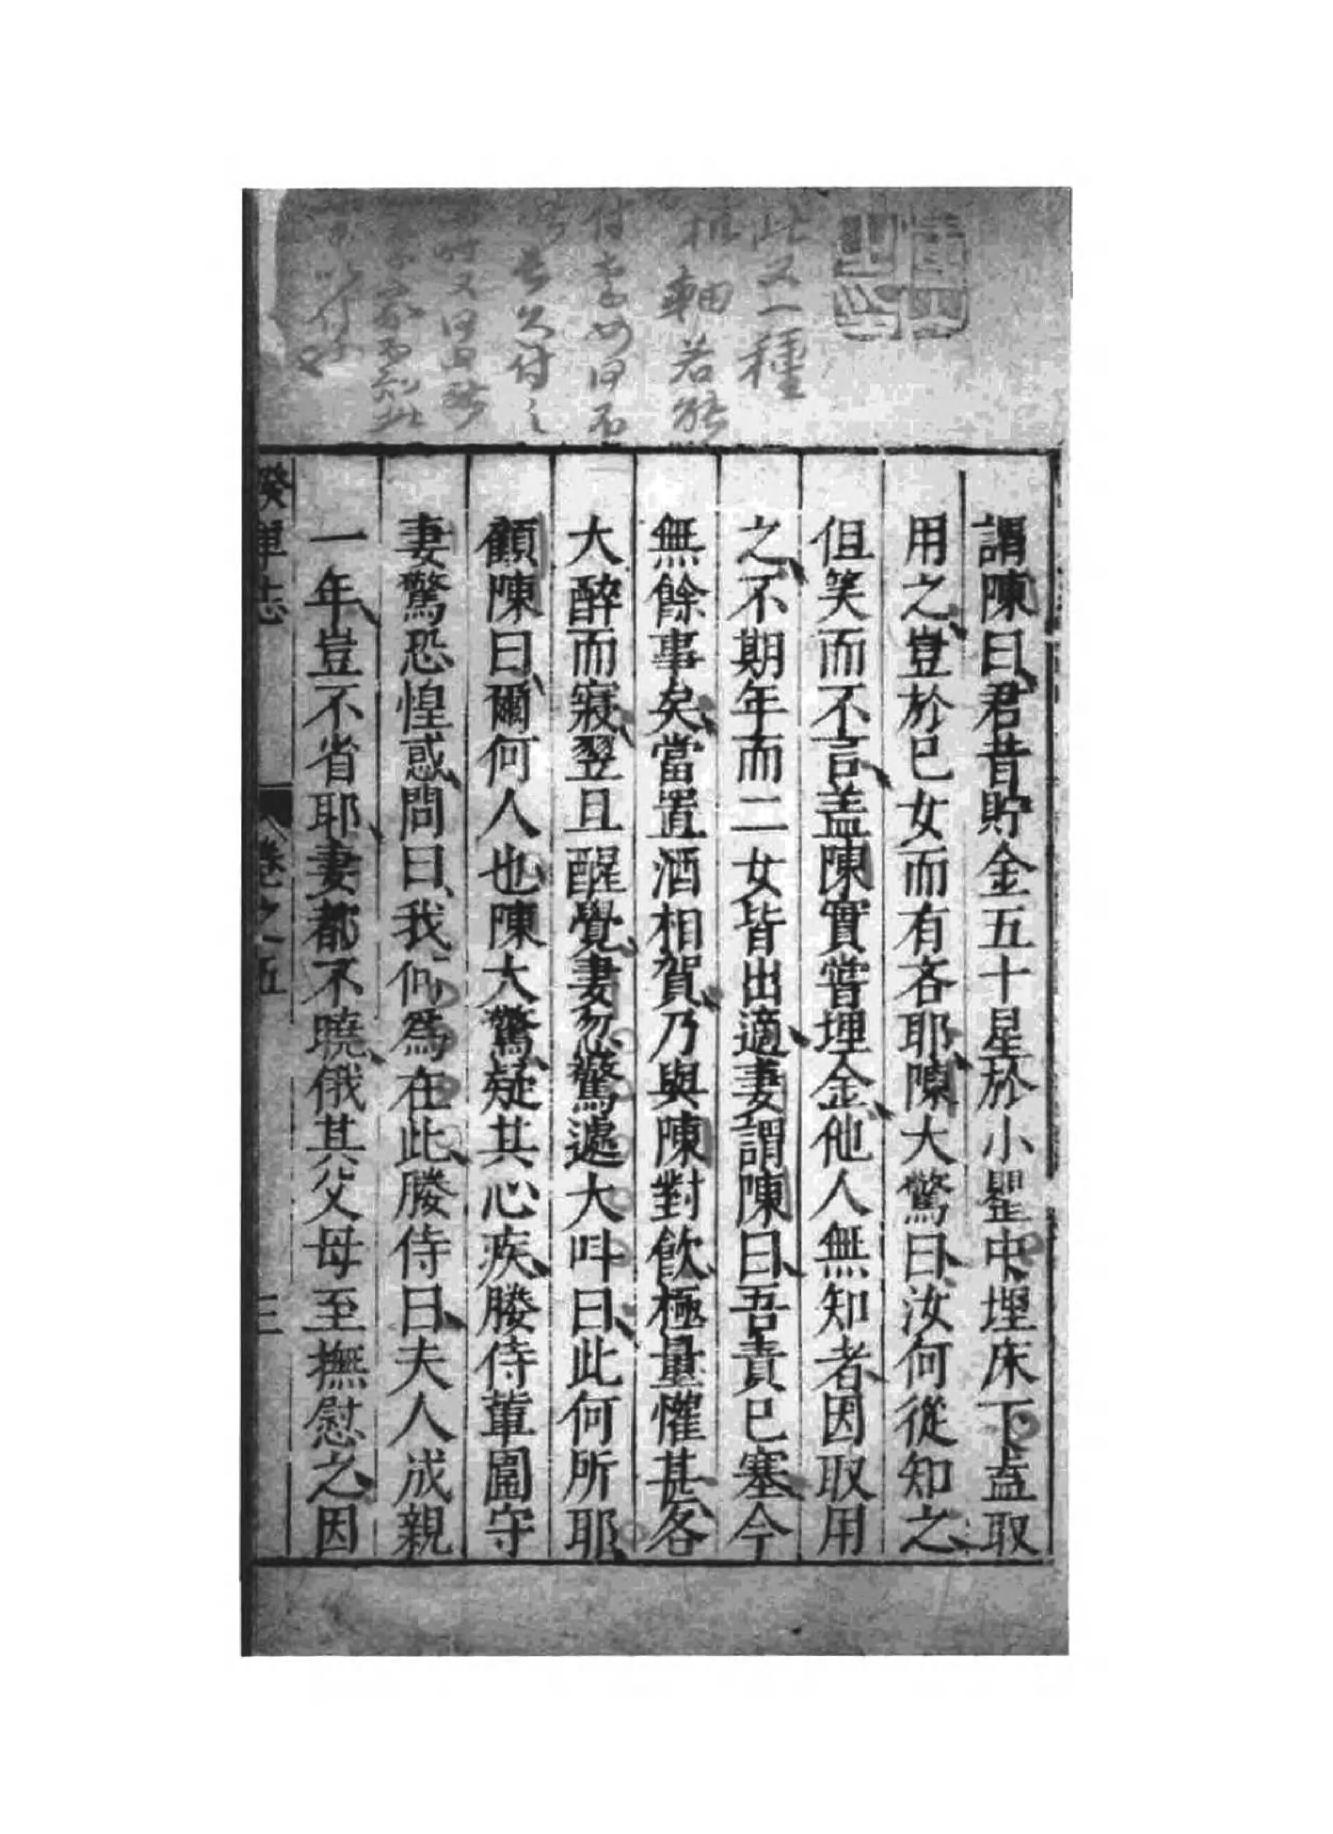 此又一種
軸若能
付
付之
謂陳曰君昔貯金五十星於小罌中埋床下盍取
用之豈於己女而有吝耶陳大驚曰汝何從知之
但笑而不言盖陳實嘗埋金他人無知者因取用
之不期年而二女皆出適妻謂陳曰吾責已塞今
無餘事矣當置酒相賀乃與陳對飲極量懽甚各
大醉而寢翌旦醒覺妻忽驚遽大呌曰此何所耶
顧陳曰爾何人也陳大驚疑其心疾媵侍輩圍守
妻驚恐惶惑問曰我何為在此媵侍曰夫人成親
一年豈不省耶妻都不曉俄其父母至撫慰之因
睽車志
卷之五
三